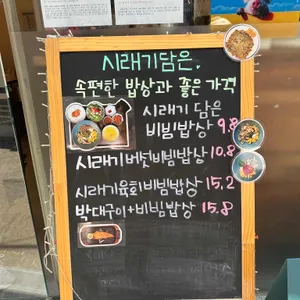 시래기담은.
속편한 밥상과 좋은 가격
시래기 담은
비빔밥상 9.8
시래기버섯비빔밥상 10.8
시래기육회비빔밥상 15.2
박대구이+비빔밥상 15.8